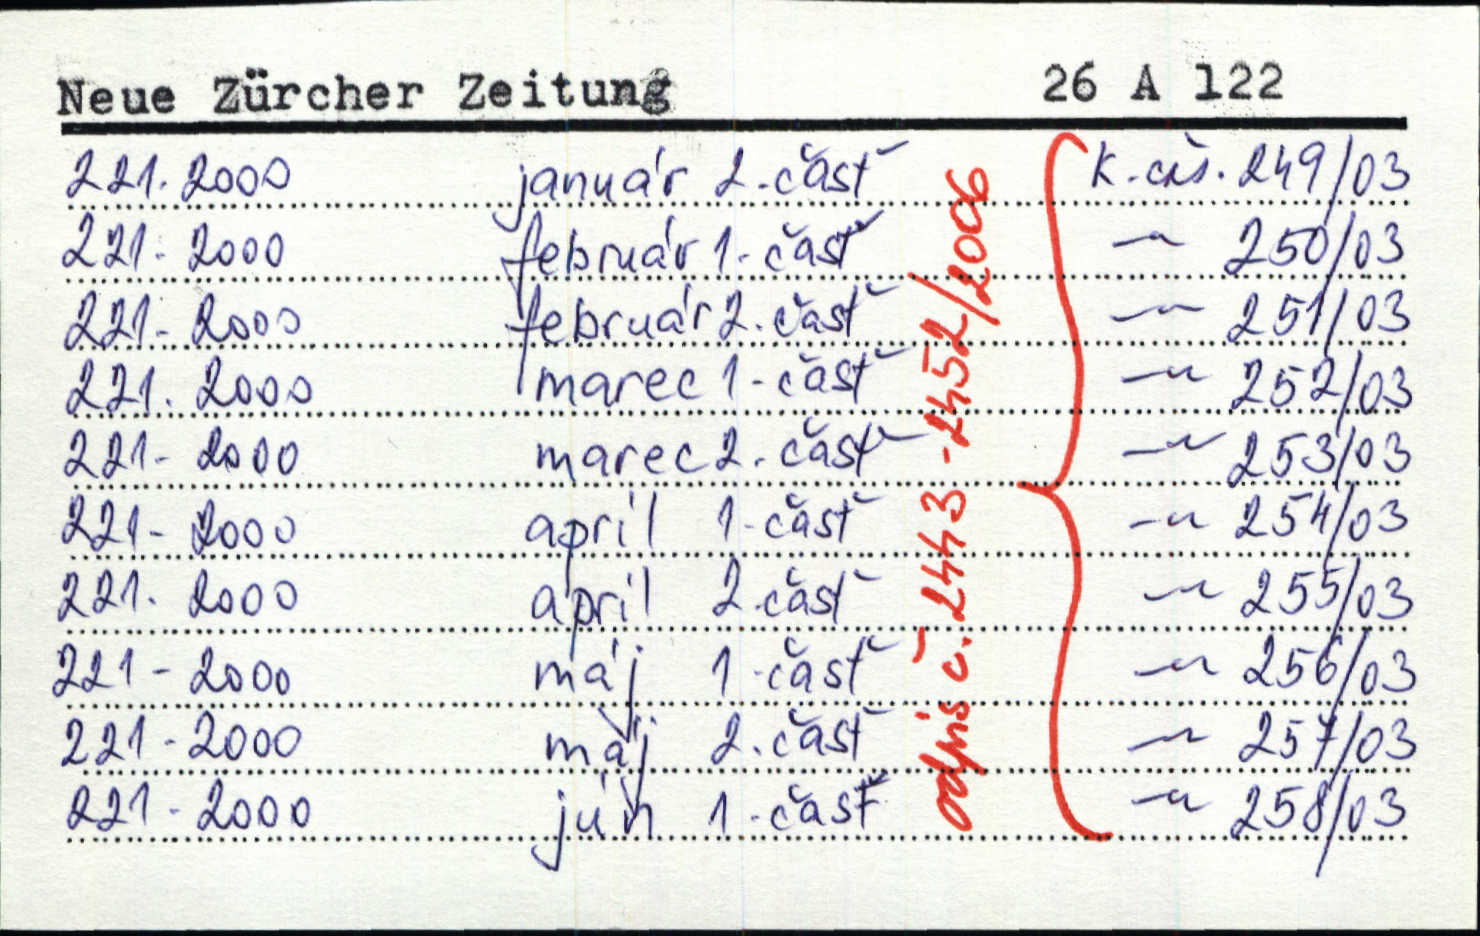 Neue Zürcher Zeitung 26 A 122
221. 2000 január 2. časť k. čís. 249/03
221. 2000 február 1. časť -"- 250/03
221. 2000 február 2. časť -"- 251/03
221. 2000 marec 1. časť -"- 252/03
221. 2000 marec 2. časť -"- 253/03
221. 2000 apríl 1. časť -"- 254/03
221. 2000 apríl 2. časť -"- 255/03
221. 2000 máj 1. časť -"- 256/03
221. 2000 máj 2. časť -"- 257/03
221. 2000 jún 1. časť -"- 258/03
odpis č. 2443 - 2452/2006